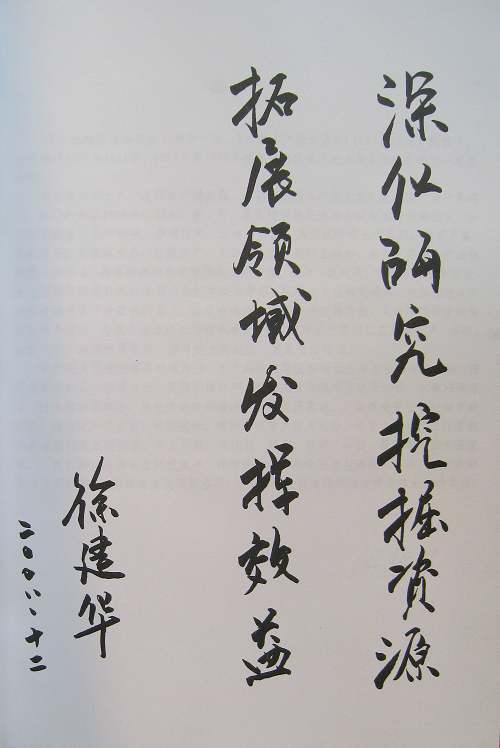 深化研究挖掘资源
拓展领域发挥效益
徐建华
二〇〇八·十二